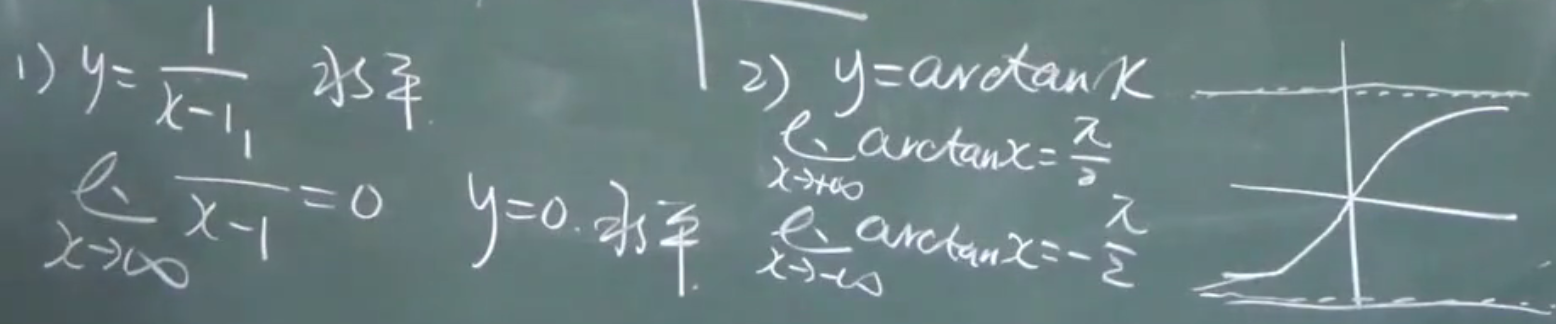 1) y = 1/(x-1) 水平.
lim x→∞ 1/(x-1) = 0 y=0. 水平.
2) y = arctan x
lim x→+∞ arctan x = π/2
lim x→-∞ arctan x = -π/2